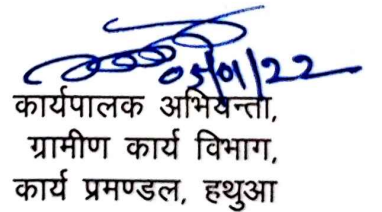 05/01/22
कार्यपालक अभियन्ता,
ग्रामीण कार्य विभाग,
कार्य प्रमण्डल, हथुआ